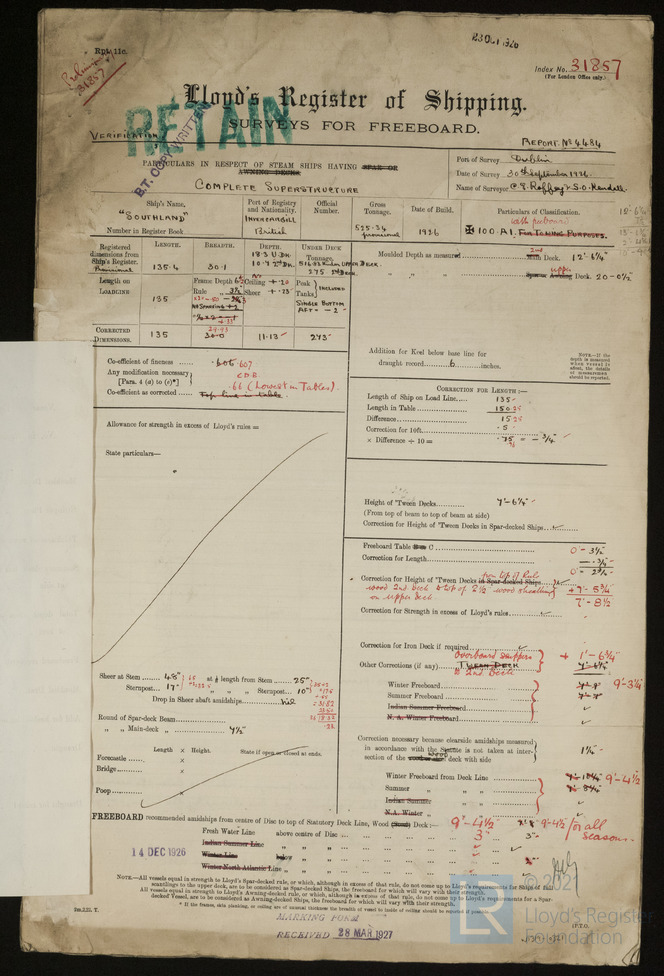 23 OCT 1926
Rpt. 11c.
Preliminary
31857
Index No. 31857
(For London Office only.)
Lloyd's Register of Shipping.
SURVEYS FOR FREEBOARD.
RETAIN
B.T. COPY WRITTEN
VERIFICATION
REPORT. No 4484
PARTICULARS IN RESPECT OF STEAM SHIPS HAVING SPAR OR
AWNING DECKS.
COMPLETE SUPERSTRUCTURE
Port of Survey Dublin
Date of Survey 30th September 1926.
Name of Surveyor
Ship's Name,
"SOUTHLAND"
Number in Register Book
Port of Registry and Nationality.
INVERCARGILL
British
Official Number.
Gross Tonnage.
525.34
provisional
Date of Build.
1926
Particulars of Classification.
with freeboard
✠ 100 A1. FOR TOWING PURPOSES.
Registered dimensions from Ship's Register.
Provisional
LENGTH.
135.4
BREADTH.
30.1
DEPTH.
18.3 U.DK.
10.7 2nd DK.
UNDER DECK TONNAGE.
516.83 Under UPPER DECK.
275 2nd DECK.
Moulded Depth as measured
2nd Deck. 12'-6¼"
upper
Spar or Awning Deck. 20-0½"
Length on LOADLINE
135
Frame Depth 6½
Rule " 3½
No SPARRING + 2
Ceiling + .20
Sheer + .23
Peak Tanks } INCLUDED
SINGLE BOTTOM
AFT = - 2 -
CORRECTED DIMENSIONS.
135
29.93
30.0
11.13
273
Addition for Keel below base line for
draught record 6 inches.
NOTE.—If the depth is measured when vessel is afloat, the details of measurement should be reported.
Co-efficient of fineness .606 .607
Any modification necessary
[Para. 4 (a) to (e)*] C.D.B.
.66 (Lowest in Tables).
Co-efficient as corrected Top line in table.
CORRECTION FOR LENGTH:—
Length of Ship on Load Line 135
Length in Table 150.25
Difference 15.25
Correction for 10ft. .5
× Difference ÷ 10 = .75 = - ¾"
Allowance for strength in excess of Lloyd's rules =
State particulars—
Height of 'Tween Decks 7'-6¼"
(From top of beam to top of beam at side)
Correction for Height of 'Tween Decks in Spar-decked Ships
Freeboard Table C 0 - 3½"
Correction for Length - ¾
0 - 2¾
Correction for Height of 'Tween Decks in Spar-decked Ships from top of Rule
wood 2nd deck to top of 2½ wood sheathing
on upper deck + 7'-5¾
7'-8½
Correction for Strength in excess of Lloyd's rules
Correction for Iron Deck if required
Overboard scuppers
Other Corrections (if any) TWEEN DECK
to 2nd Deck + 1'-6¾"
Sheer at Stem 48" at ⅛ length from Stem 25"
Sternpost 17" " " " Sternpost 10"
Drop in Sheer abaft amidships Nil
Round of Spar-deck Beam
" " Main-deck " 7½"
Winter Freeboard 9'-3¼"
Summer Freeboard
Indian Summer Freeboard
N. A. Winter Freeboard
Length × Height. State if open or closed at ends.
Forecastle ×
Bridge ×
Poop ×
Correction necessary because clearside amidships measured
in accordance with the Statute is not taken at inter-
section of the wood deck with side 1¼"
Winter Freeboard from Deck Line 9'-4½
Summer " " "
Indian Summer " "
N.A. Winter " "
FREEBOARD recommended amidships from centre of Disc to top of Statutory Deck Line, Wood Deck:— 9'-4½ 9'-4½ for all
seasons.
Fresh Water Line above centre of Disc 3" 3"
Indian Summer Line " " "
Winter Line below " "
Winter North Atlantic Line " " "
14 DEC 1926
NOTE.—All vessels equal in strength to Lloyd's Spar-decked rule, or which, although in excess of that rule, do not come up to Lloyd's requirements for Ships of full
scantlings to the upper deck, are to be considered as Spar-decked Ships, the freeboard for which will vary with their strength.
All vessels equal in strength to Lloyd's Awning-deck rule, or which, although in excess of that rule, do not come up to Lloyd's requirements for a Spar-
decked Vessel, are to be considered as Awning-decked Ships, the freeboard for which will vary with their strength.
MARKING FORM
RECEIVED 28 MAR 1927
(P.T.O.
© 2021
Lloyd's Register
Foundation